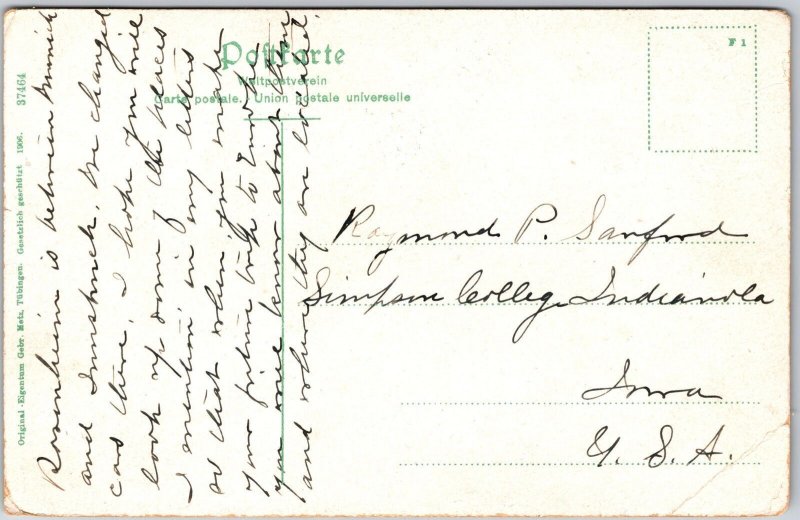 Postkarte
Weltpostverein
Carte postale. - Union postale universelle
F 1
37464
Original-Eigentum Gebr. Metz, Tübingen. Gesetzlich geschützt 1906.
Rosenheim is between Munich
and Innsbruck. We changed
cars there. I hope you will
look up some of the places
I mention in my letters
so that when you make
your future trip to Europe
you will know about them
and where they are located
Raymond P. Sanford
Simpson College, Indianola
Iowa
U. S. A.